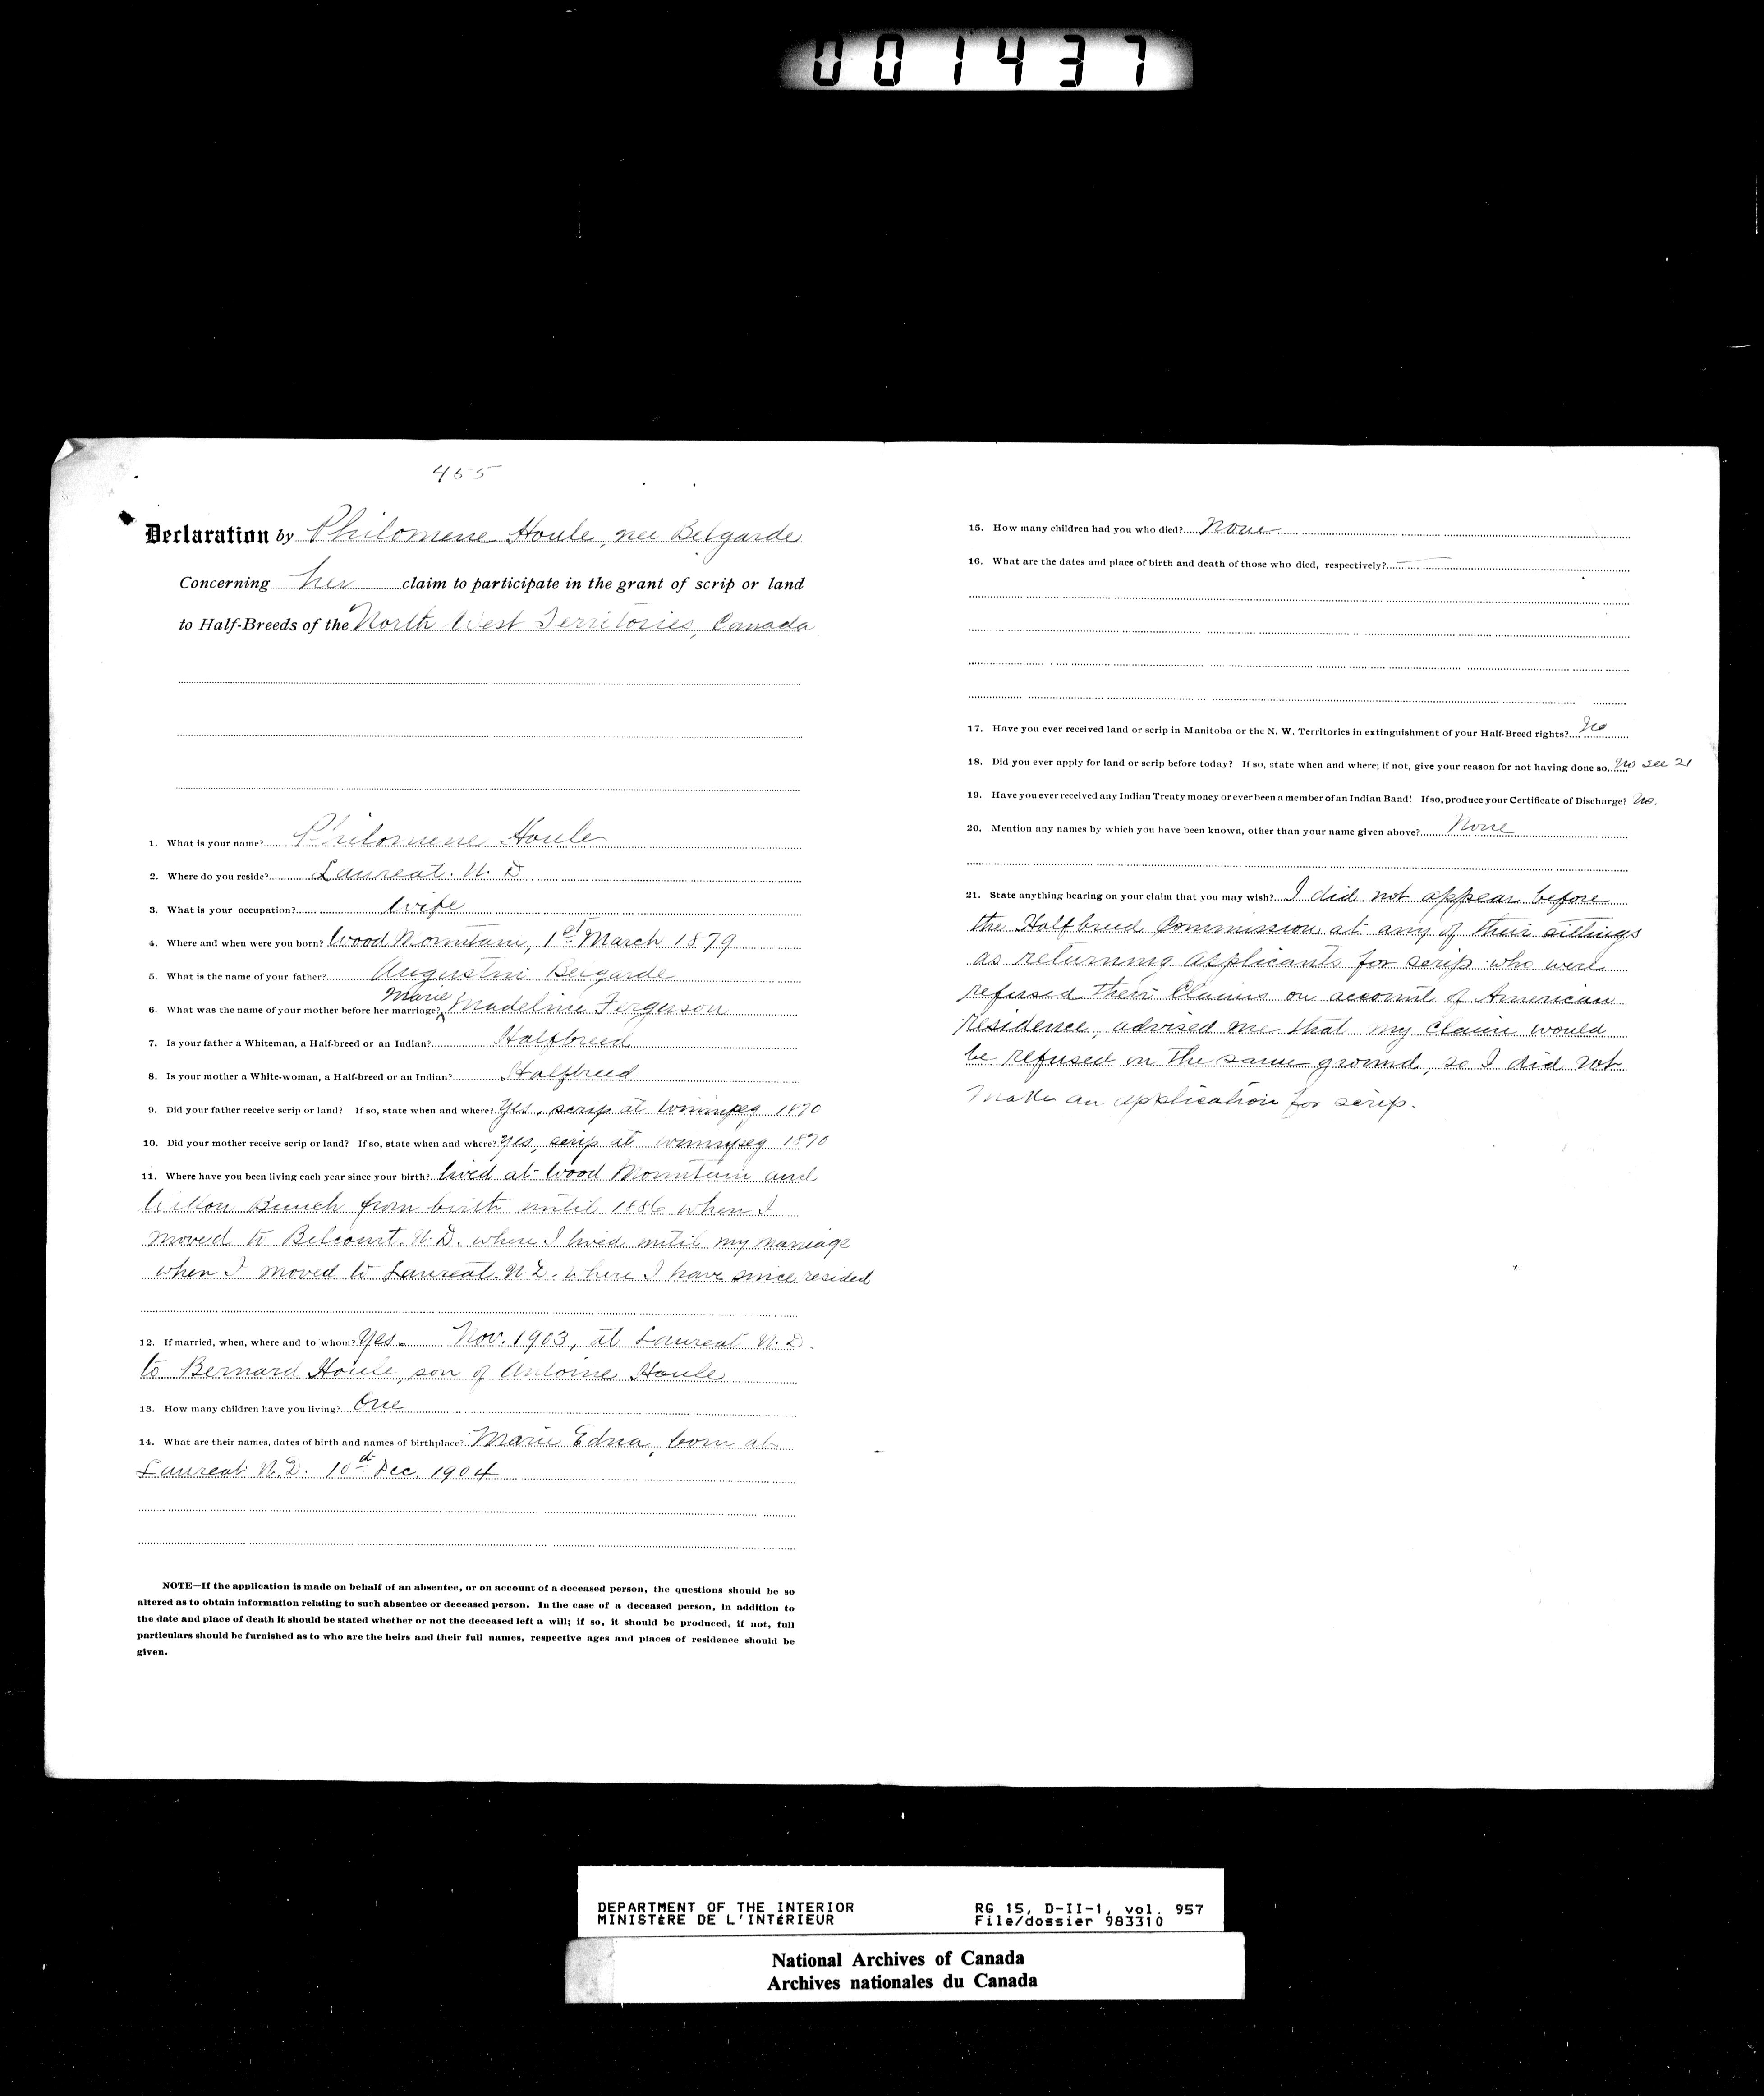 001437
455
Declaration by Philomene Houle, nee Belgarde
Concerning her claim to participate in the grant of scrip or land
to Half-Breeds of the North West Territories, Canada
1. What is your name? Philomene Houle
2. Where do you reside? Laureat. N. D.
3. What is your occupation? Wife
4. Where and when were you born? Wood Mountain, 1st March 1879
5. What is the name of your father? Augustin Belgarde
6. What was the name of your mother before her marriage? Marie Madeline Ferguson
7. Is your father a Whiteman, a Half-breed or an Indian? Halfbreed
8. Is your mother a White-woman, a Half-breed or an Indian? Halfbreed
9. Did your father receive scrip or land? If so, state when and where? Yes, scrip at Winnipeg 1870
10. Did your mother receive scrip or land? If so, state when and where? Yes, scrip at Winnipeg 1870
11. Where have you been living each year since your birth? lived at Wood Mountain and
Willow Bunch from birth until 1886 when I
moved to Belcourt. N. D. where I lived until my marriage
when I moved to Laureat. N D. where I have since resided
12. If married, when, where and to whom? Yes. Nov. 1903, at Laureat N. D.
to Bernard Houle, son of Antoine Houle
13. How many children have you living? One
14. What are their names, dates of birth and names of birthplace? Marie Edna, born at
Laureat N. D. 10th Dec. 1904
NOTE—If the application is made on behalf of an absentee, or on account of a deceased person, the questions should be so
altered as to obtain information relating to such absentee or deceased person. In the case of a deceased person, in addition to
the date and place of death it should be stated whether or not the deceased left a will; if so, it should be produced, if not, full
particulars should be furnished as to who are the heirs and their full names, respective ages and places of residence should be
given.
15. How many children had you who died? None
16. What are the dates and place of birth and death of those who died, respectively? —
17. Have you ever received land or scrip in Manitoba or the N. W. Territories in extinguishment of your Half-Breed rights? No
18. Did you ever apply for land or scrip before today? If so, state when and where; if not, give your reason for not having done so. No see 21
19. Have you ever received any Indian Treaty money or ever been a member of an Indian Band? If so, produce your Certificate of Discharge? No.
20. Mention any names by which you have been known, other than your name given above? None
21. State anything bearing on your claim that you may wish? I did not appear before
the Halfbreed Commission at any of their sittings
as returning applicants for scrip who were
refused their Claims on account of American
residence, advised me that my Claim would
be refused on the same ground, so I did not
make an application for scrip.
DEPARTMENT OF THE INTERIOR RG 15, D-II-1, vol. 957
MINISTÈRE DE L'INTÉRIEUR File/dossier 983310
National Archives of Canada
Archives nationales du Canada